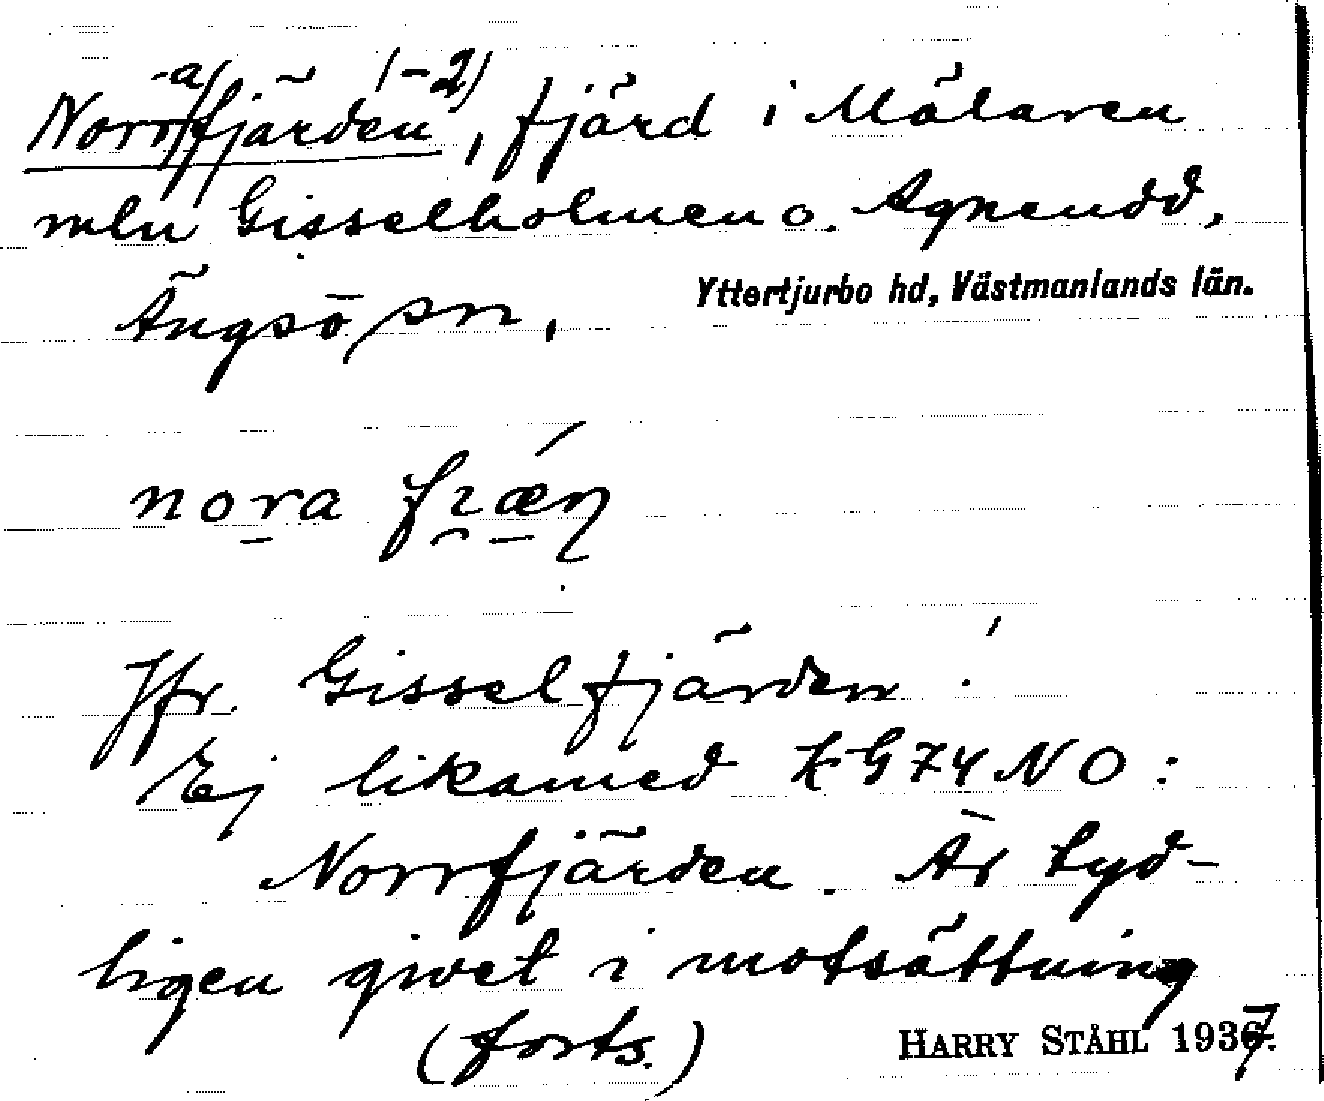 Norra fjärden 1-2), fjärd i Mälaren
mln Gisselholmen o. Agnudd,
Ängsö sn, Yttertjurbo hd, Västmanlands län.
nora
Jfr. Gisselfjärden!
Ej likamed KG 74 NO:
Norrfjärden. Är tyd-
ligen givet i motsättning
(forts.) HARRY STÅHL 1937.